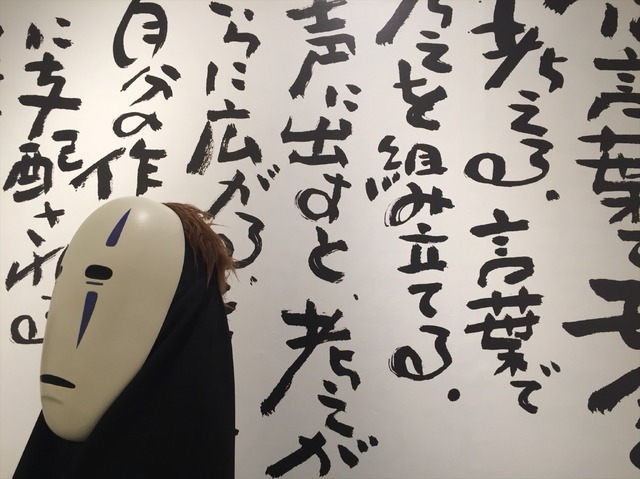 言葉で
考える。言葉で
考えを組み立てる。
声に出すと、考えが
さらに広がる。
自分の作
に支配される